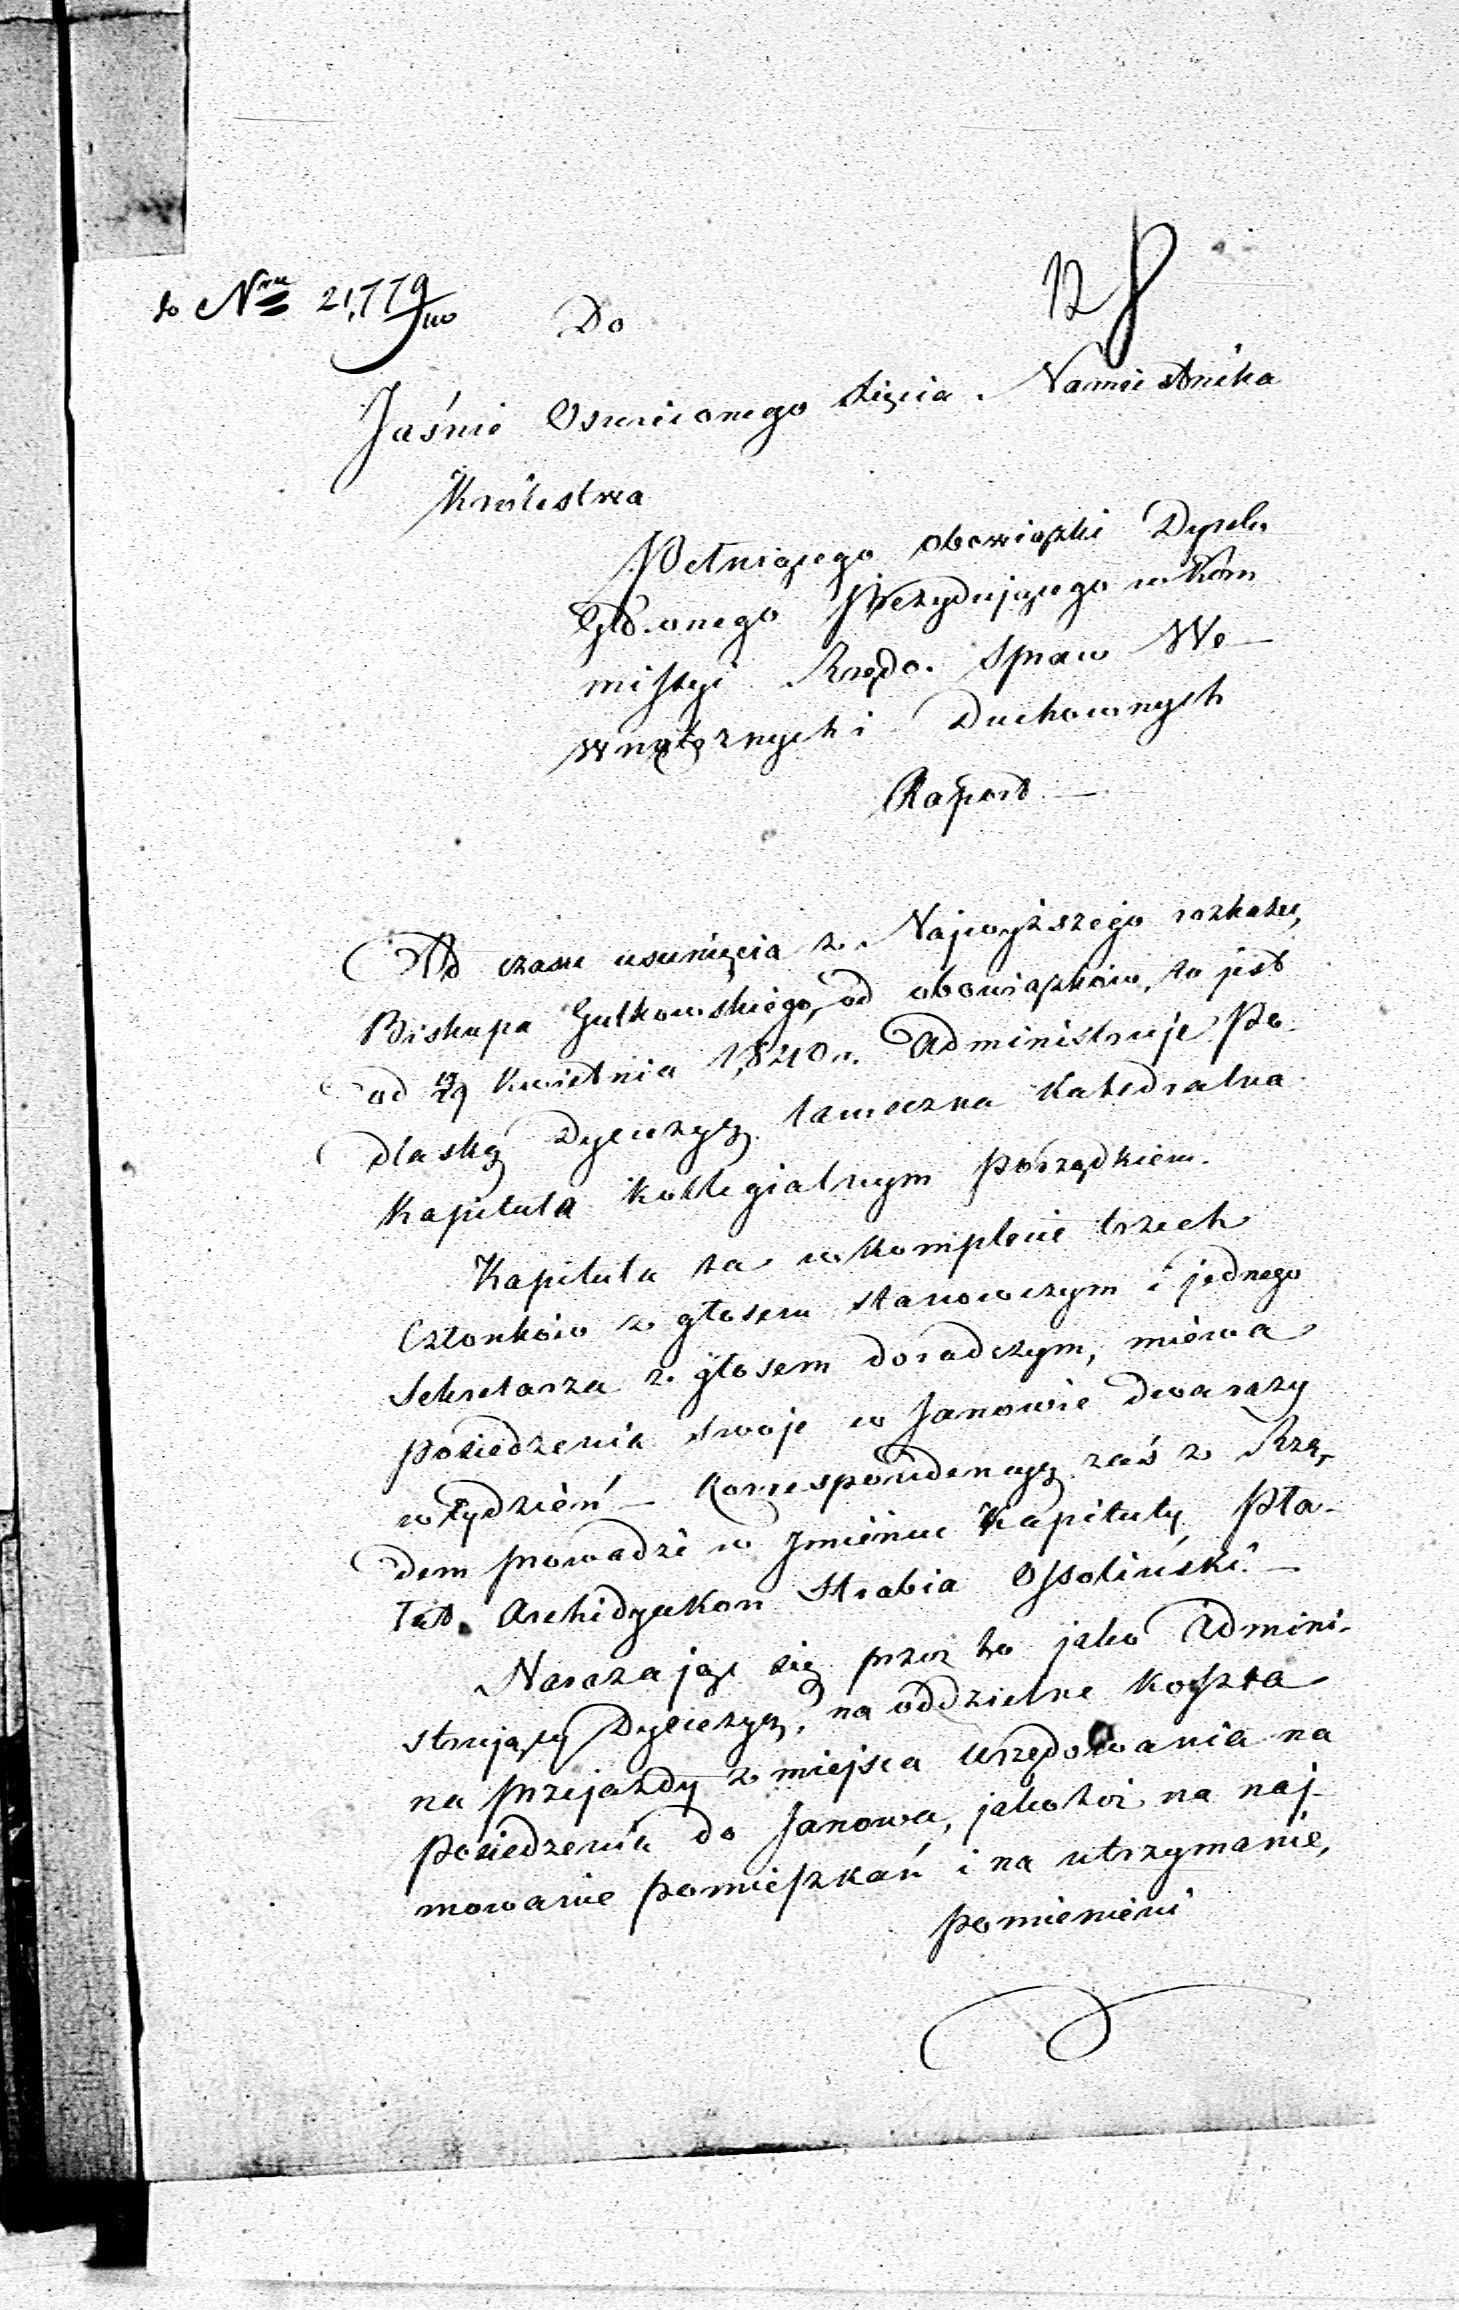 do Nru 21,779
12
Do
Jaśnie Oswieconego Xięcia Namiestnika
Królestwa
Pełniącego obowiązki Dyrek.
Głównego Prezydującego w Kom
missyi Rządo. Spraw We-
wnętrznych i Duchownych
Raport —
Od czasu usunięcia z Najwyższego rozkazu,
Biskupa Gutkowskiego, od obowiązków, to jest
od 19 Kwietnia 1,840 r. Administruje Po-
dlaską Dyecezyą tameczna Katedralna
Kapituła kollegialnym porządkiem.
Kapituła ta w komplecie trzech
Członków z głosem stanowczym i jednego
Sekretarza z głosem doradczym, miewa
posiedzenia swoje w Janowie dwa razy
w tydzień — korrespondencyą zaś z Rzą-
dem prowadzi w Jmieniu Kapituły, Pra-
łat Archidyakon Hrabia Ossoliński. —
Narażając się przez to jako Admini-
strujący Dyecezyą, na oddzielne koszta
na przejazdy z miejsca urzędowania na
posiedzenia do Janowa, jakoteż na naj-
mowanie pomieszkań i na utrzymanie,
pomienieni